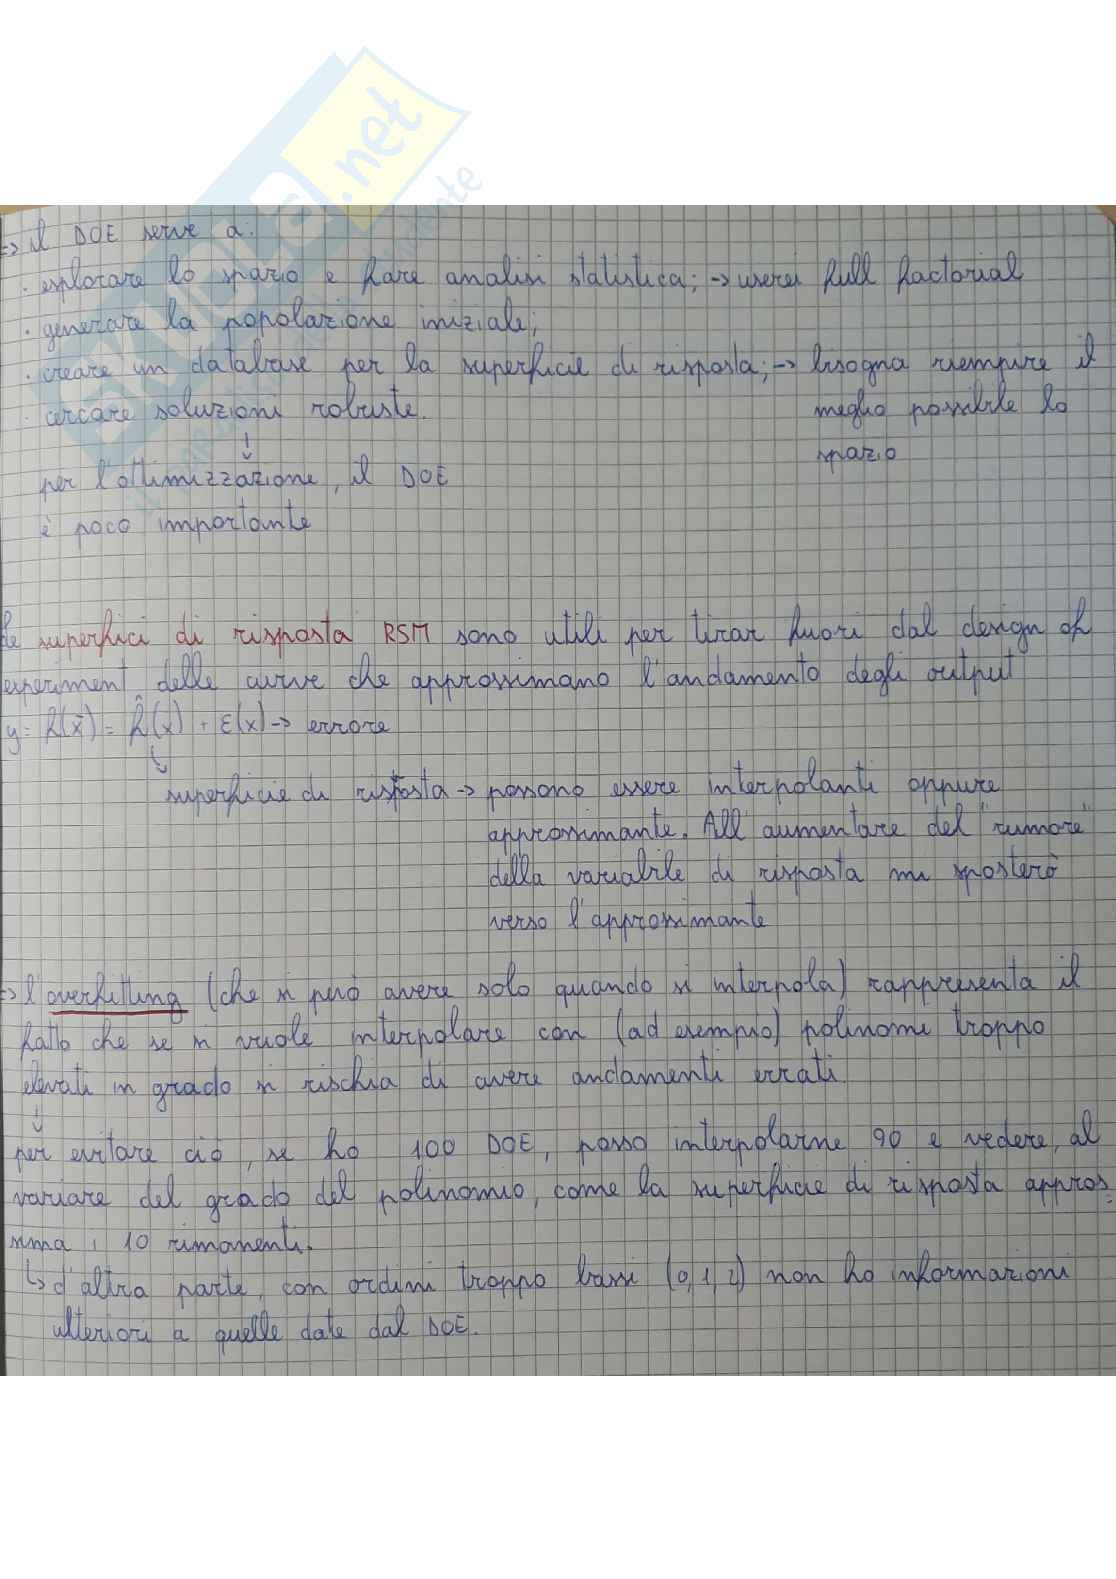 skuola.net
=> il DOE serve a:
· esplorare lo spazio e fare analisi statistica; -> userei full factorial
· generare la popolazione iniziale;
· creare un database per la superficie di risposta; -> bisogna riempire il
· cercare soluzioni robuste. meglio possibile lo
spazio
per l'ottimizzazione, il DOE
è poco importante
Le superfici di risposta RSM sono utili per tirar fuori dal design of
experiment delle curve che approssimano l'andamento degli output
y = f(x̄) = f̂(x) + ε(x) -> errore
superficie di risposta -> possono essere interpolanti oppure
approssimante. All'aumentare del "rumore"
della variabile di risposta mi sposterò
verso l'approssimante
=> l'overfitting (che si può avere solo quando si interpola) rappresenta il
fatto che se si vuole interpolare con (ad esempio) polinomi troppo
elevati in grado si rischia di avere andamenti errati
per evitare ciò, se ho 100 DOE, posso interpolarne 90 e vedere, al
variare del grado del polinomio, come la superficie di risposta appros=
sima i 10 rimanenti.
↳ d'altra parte, con ordini troppo bassi (0,1,2) non ho informazioni
ulteriori a quelle date dal DOE.